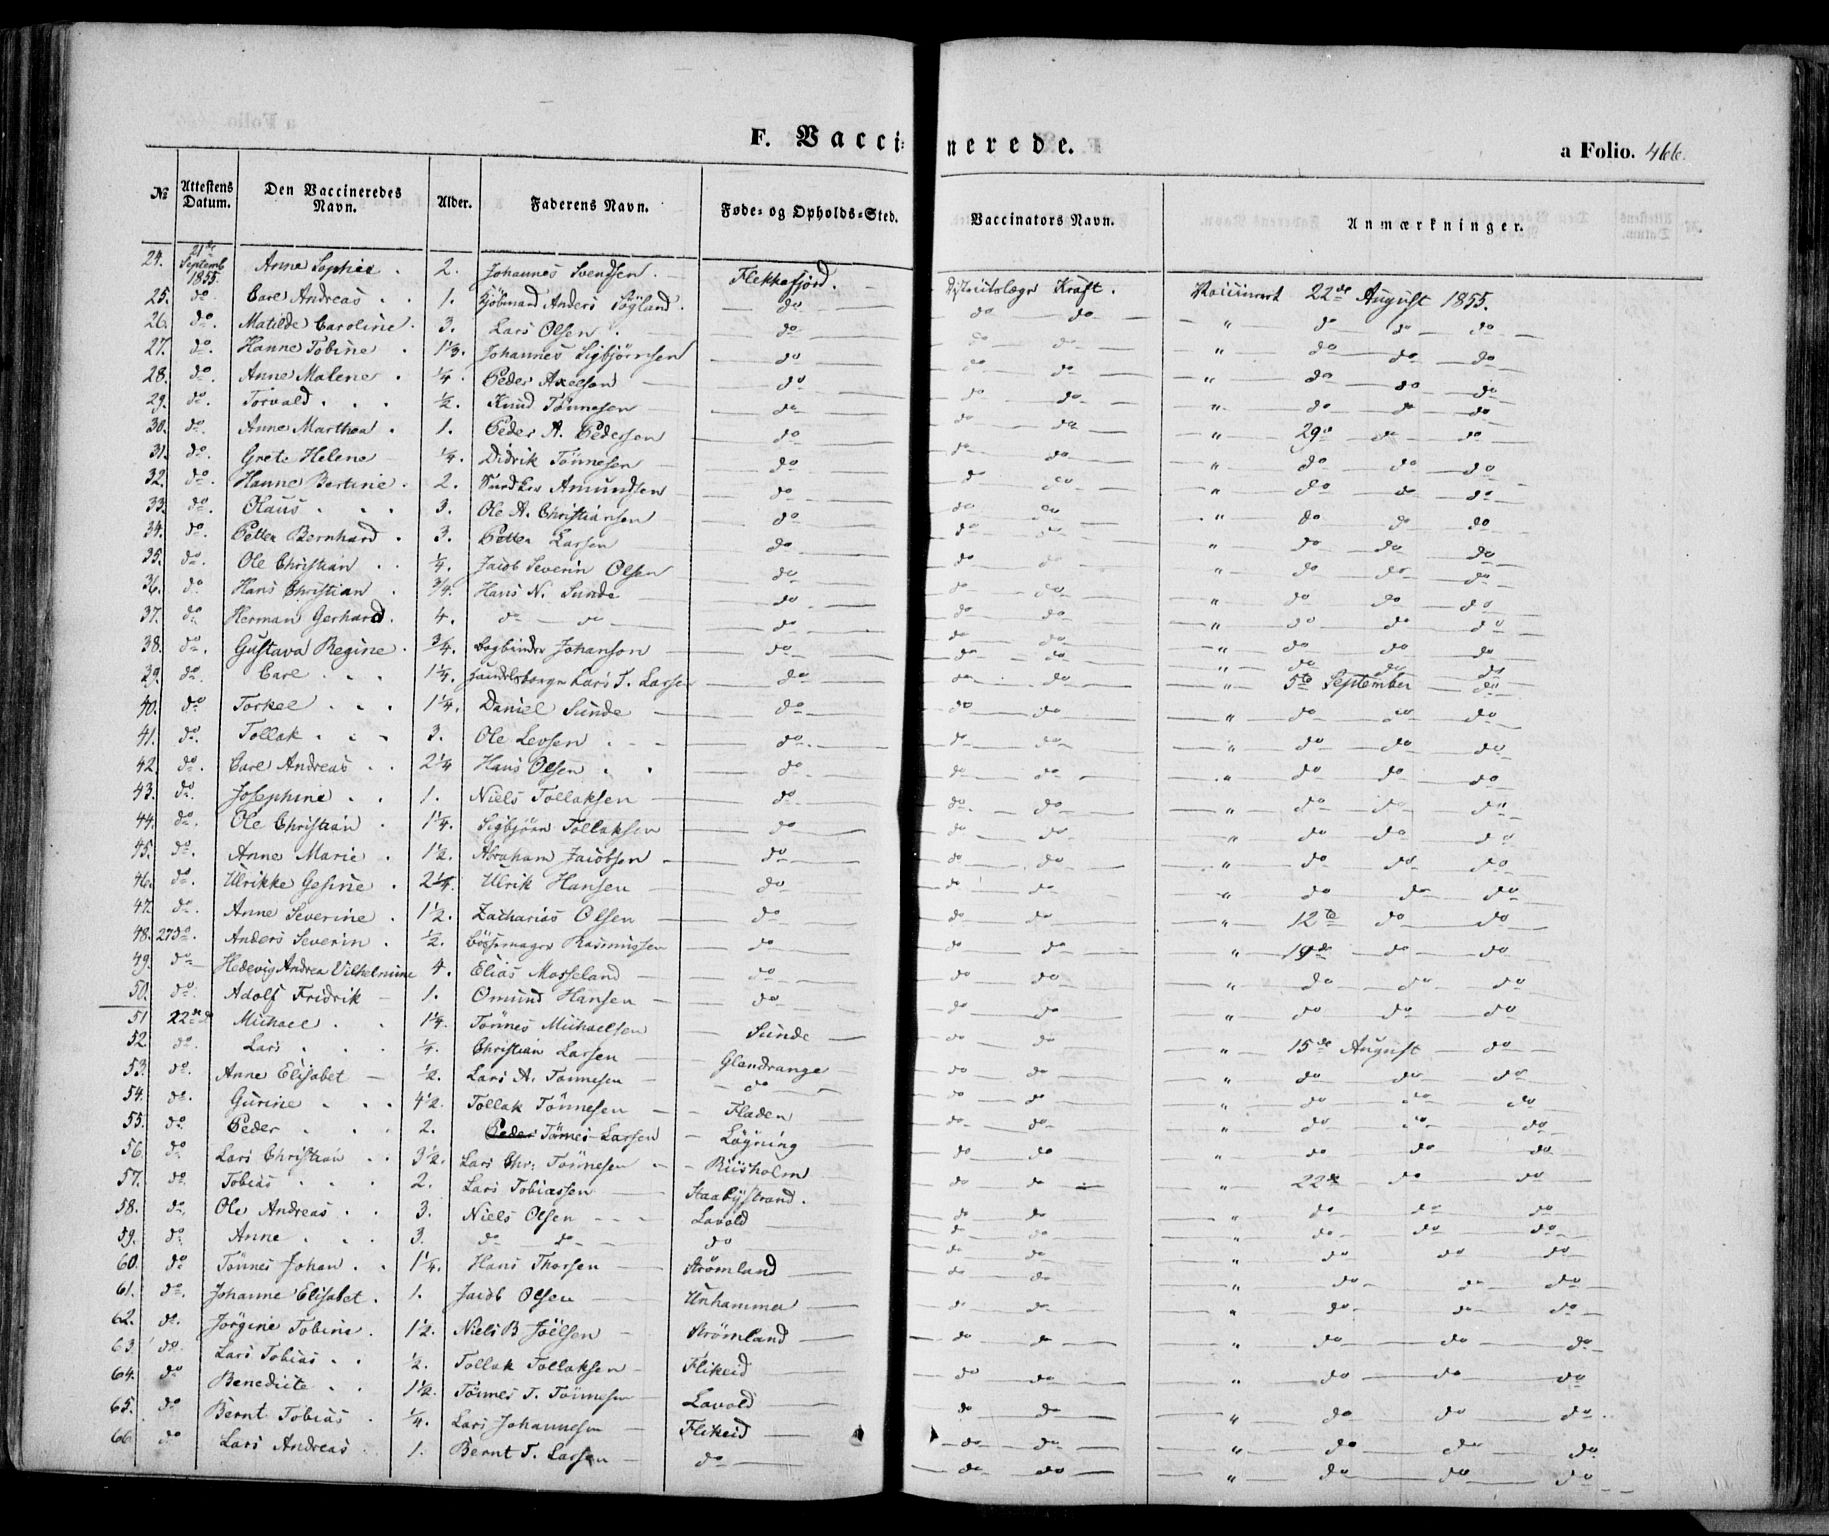 F. Vaccinerede.
a Folio. 466.
№ | Attestens Datum. | Den Vaccineredes Navn. | Alder. | Faderens Navn. | Føde- og Opholds-Sted. | Vaccinators Navn. | Anmærkninger.
24. 21de Septemb 1855. Anne Sophie . 2. Johannes Svendsen . Flekkefjord. Districtslæge Kraft. Vaccineret 22de August 1855.
25. do. Carl Andreas . . 1. Kjöbmand Anders Sögland. do do do " do do do
26. do. Matilde Caroline. 3. Lars Olsen . do do do " do do do
27. do. Hanne Tobine . 1 1/3. Johannes Sigbjörnsen do do do " do do do
28. do. Anne Malene . 1/4. Peder Axelsen do do do " do do do
29. do. Torvald . . . 1/2. Knud Tönnesen do do do " 29de do do
30. do. Anne Marthea . 1. Peder A. Pedersen do do do " do do do
31. do. Grete Helene 1/4. Didrik Tönnesen do do do " do do do
32. do. Hanne Bertine . 2. Snedker Amundsen do do do " do do do
33. do. Olaus . . . 3. Ole A. Christiansen do do do " do do do
34. do. Petter Bernhard . 3. Petter Larsen do do do " do do do
35. do. Ole Christian . . 1/4. Jacob Severin Olsen do do do " do do do
36. do Hans Christian . 3/4. Hans N. Sunde do do do " do do do
37. do Herman Gerhard. 4. do do do do do " do do do
38. do. Gustava Regine . 3/4. Bogbinder Johanson do do do " do do do
39. do. Carl . . . 1 1/4. Handelsborger Lars T. Larsen do do do " 5te September do
40. do Torkel . . . 1 1/4. Daniel Sunde do do do " do do do
41. do. Tollak . . . 3. Ole Levsen . . . do do do " do do do
42. do. Carl Andreas . . 2 1/4 Hans Olsen . . do do do " do do do
43. do. Josephine . . 1. Niels Tollaksen do do do " do do do
44. do. Ole Christian . 1 1/4. Sigbjörn Tollaksen do do do " do do do
45. do. Anne Marie . 1 1/2. Abraham Jacobsen do do do " do do do
46. do. Ulrikke Gesine . 2 1/4. Ulrik Hansen do do do " do do do
47. do. Anne Severine . 1 1/2. Zacharias Olsen do do do " 12te do do
48. 27 do. Anders Severin . 1/2. Bössemager Rasmussen do do do " 19de do do
49. do Hedevig Andrea Vilhelmine 4. Elias Mosseland do do do " do do do
50. do. Adolf Fridrik 1. Omund Hansen do do do " do do do
51 22de Michael . . 1 1/4. Tönnes Michaelsen Sunde do do " 15de August do
52. do. Lars . . . 1/4. Christian Larsen Glendrange do do " do do do
53. do. Anne Elisabet 1/2. Lars A. Tönnesen do do do " do do do
54. do. Gurine . . . 4 1/2. Tollak Tönnesen Fladen do do " do do do
55. do Peder . . . 2. Peder Tönnes Larsen Lögning do do " do do do
56. do Lars Christian . . 3 1/2. Lars Chr: Tönnesen Riisholm do do " 22de do do
57. do. Tobias . . . 2. Lars Tobiassen Staabystrand. do do " do do do
58. do. Ole Andreas . . 3. Niels Olsen Lavold do do " do do do
59. do Anne . . . 3. do do do do do " do do do
60. do Tönnes Johan . . 1 1/4. Hans Thorsen Strömland do do " do do do
61. do. Johanne Elisabet . 1. Jacob Olsen Unhammer do do " do do do
62. do. Jörgine Tobine . 1 1/2. Niels B Joëlsen Strömland do do " do do do
63. do. Lars Tobias . . 1/2. Tollak Tollaksen Flikeid do do " do do do
64. do Benedicte . . 1 1/2. Tönnes T. Tönnesen Lavold do do " do do do
65. do Bernt Tobias . 1/4. Lars Johannesen Flikeid do do " do do do
66 do Lars Andreas 1. Bernt T. Larsen do do do " do do do